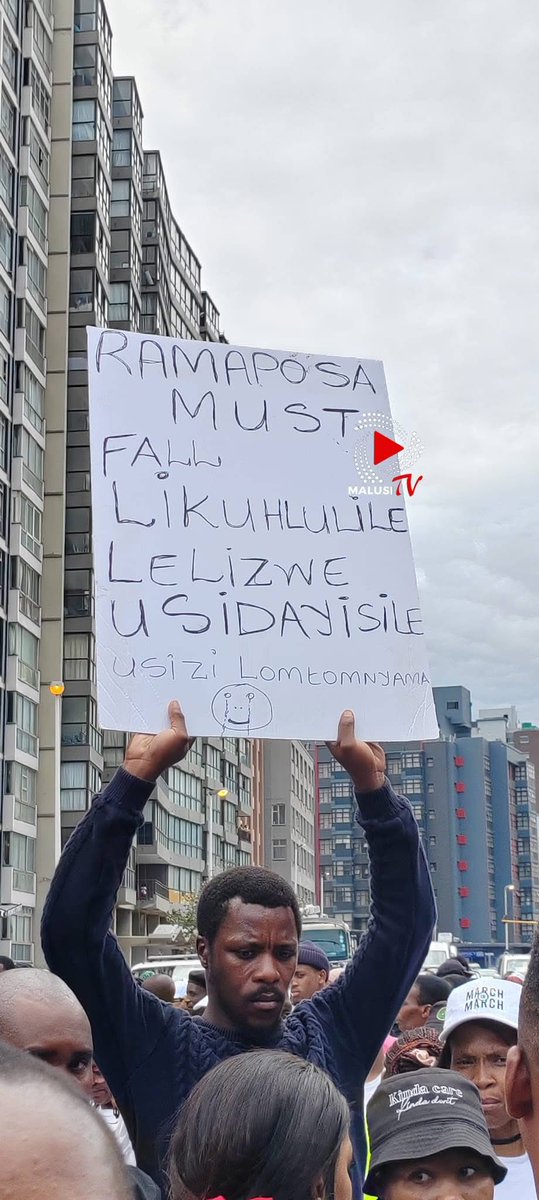 RAMAPOSA
MUST
FALL
LIKUHLULILE
LELIZWE
USIDAYISILE
USIZI LOMTOMNYAMA
MALUSI TV
MARCH
MARCH
Kinda care
Kinda don't